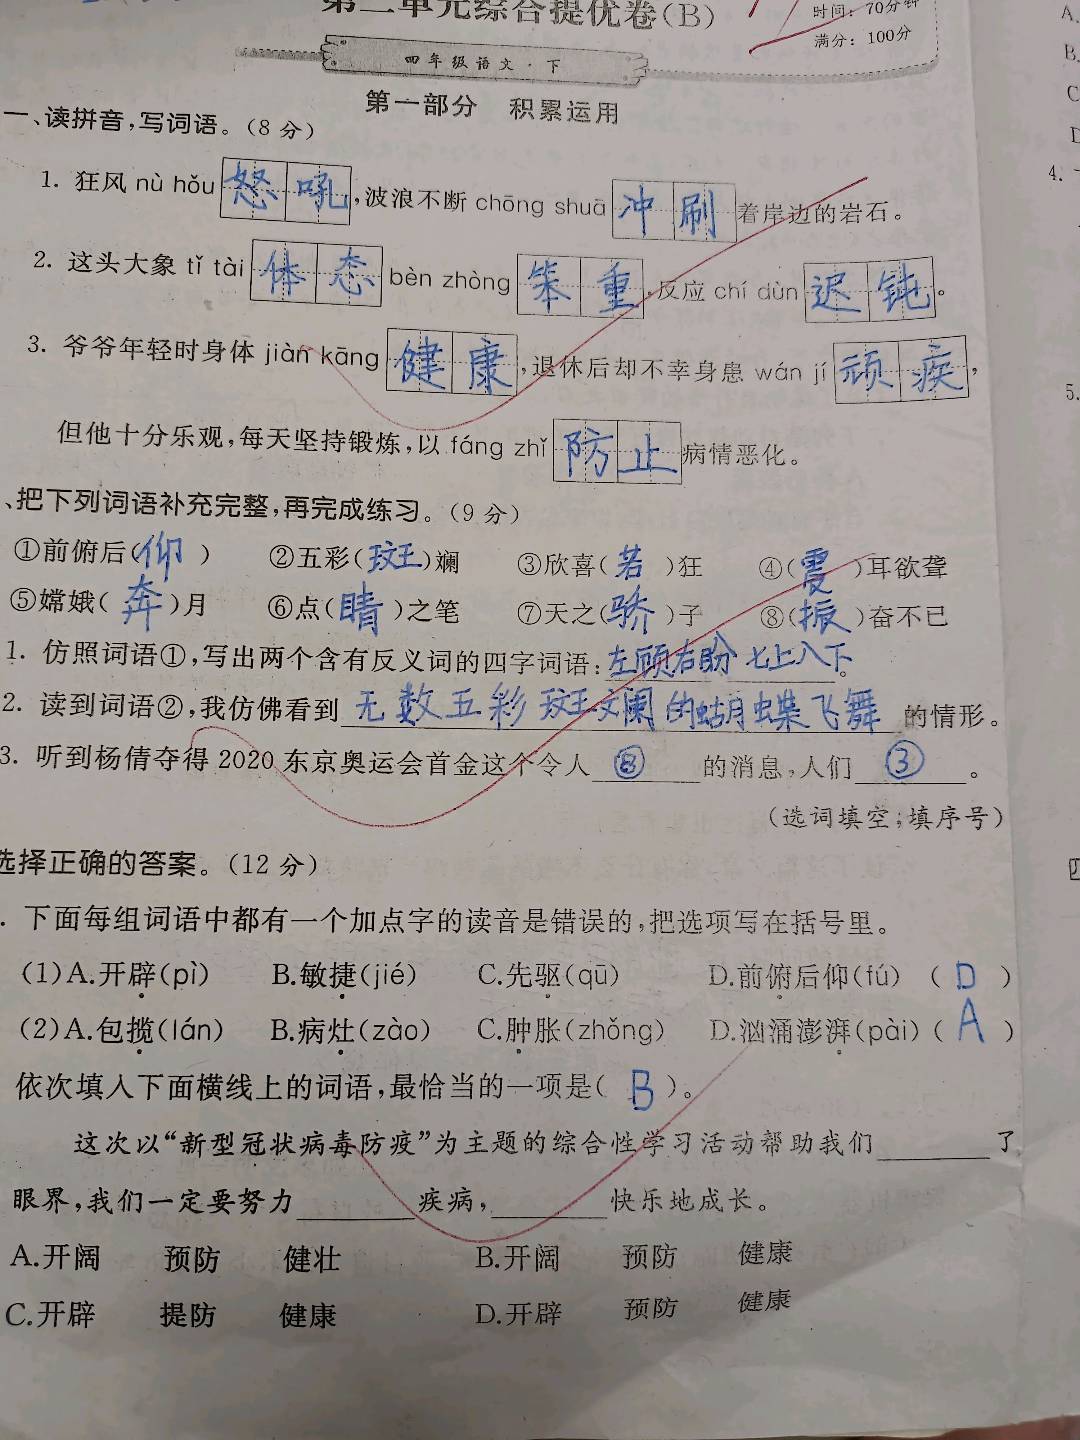 第二单元综合提优卷(B)
时间：70分钟
满分：100分
四年级语文·下
第一部分 积累运用
一、读拼音,写词语。(8分)
1. 狂风 nù hǒu 怒吼,波浪不断 chōng shuā 冲刷着岸边的岩石。
2. 这头大象 tǐ tài 体态 bèn zhòng 笨重,反应 chí dùn 迟钝。
3. 爷爷年轻时身体 jiàn kāng 健康,退休后却不幸身患 wán jí 顽疾,
但他十分乐观,每天坚持锻炼,以 fáng zhǐ 防止病情恶化。
、把下列词语补充完整,再完成练习。(9分)
①前俯后(仰) ②五彩(斑)斓 ③欣喜(若)狂 ④(震)耳欲聋
⑤嫦娥(奔)月 ⑥点(睛)之笔 ⑦天之(骄)子 ⑧(振)奋不已
1. 仿照词语①,写出两个含有反义词的四字词语:左顾右盼 七上八下。
2. 读到词语②,我仿佛看到无数五彩斑斓的蝴蝶飞舞的情形。
3. 听到杨倩夺得 2020 东京奥运会首金这个令人⑧的消息,人们③。
(选词填空;填序号)
选择正确的答案。(12分)
. 下面每组词语中都有一个加点字的读音是错误的,把选项写在括号里。
(1)A.开辟(pì) B.敏捷(jié) C.先驱(qū) D.前俯后仰(fú) (D)
(2)A.包揽(lán) B.病灶(zào) C.肿胀(zhǒng) D.汹涌澎湃(pài) (A)
依次填入下面横线上的词语,最恰当的一项是(B)。
这次以“新型冠状病毒防疫”为主题的综合性学习活动帮助我们______了
眼界,我们一定要努力______疾病,______快乐地成长。
A.开阔 预防 健壮 B.开阔 预防 健康
C.开辟 提防 健康 D.开辟 预防 健康
A.
B.
C
4.
5.